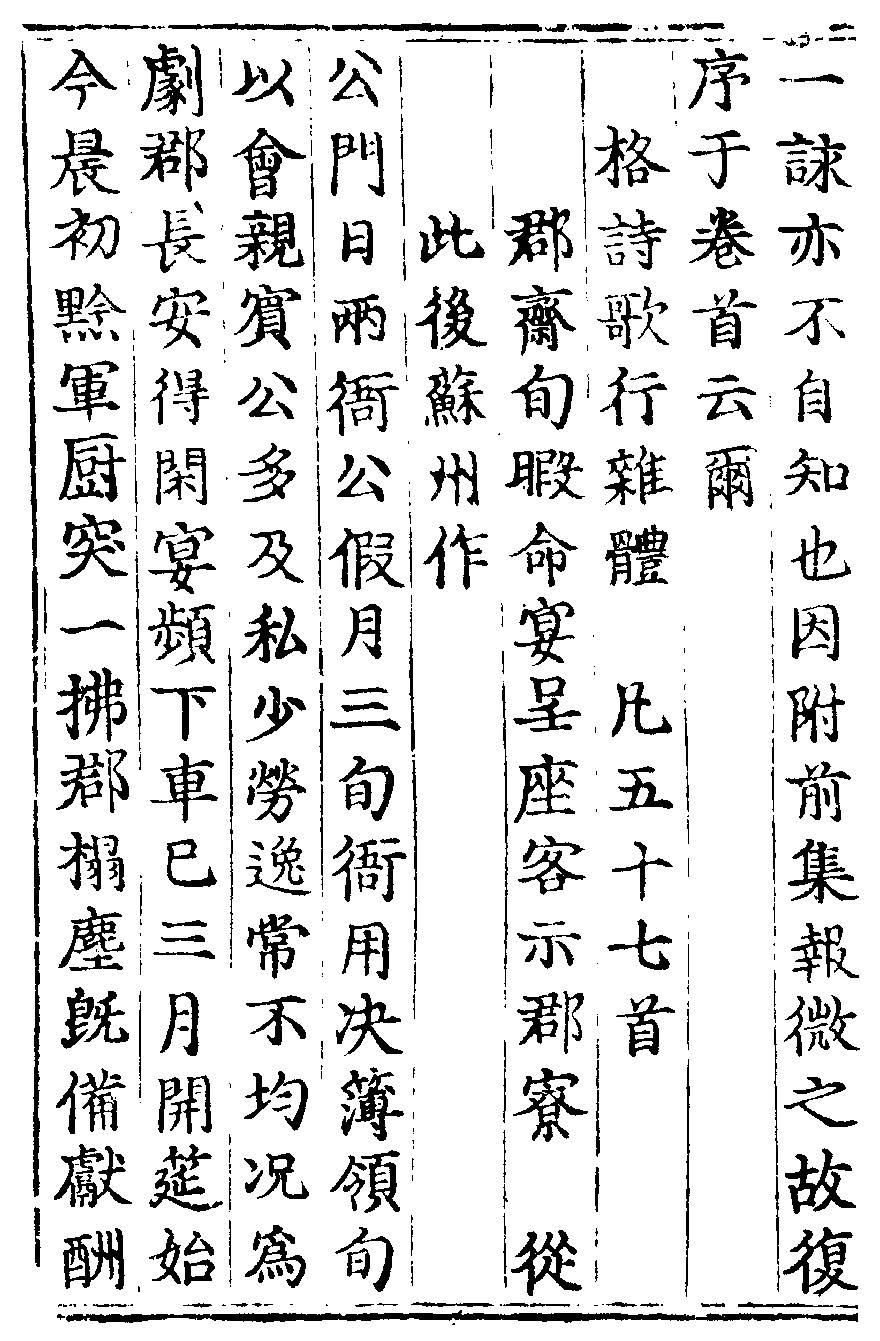 一詠亦不自知也因附前集報微之故復
序于卷首云爾
格詩歌行雜體　凡五十七首
郡齋旬暇命宴呈座客示郡寮　從
此後蘇州作
公門日兩衙公假月三旬衙用决簿領旬
以會親賓公多及私少勞逸常不均况爲
劇郡長安得閑宴頻下車已三月開筵始
今晨初黔軍厨突一拂郡榻塵旣備獻酬